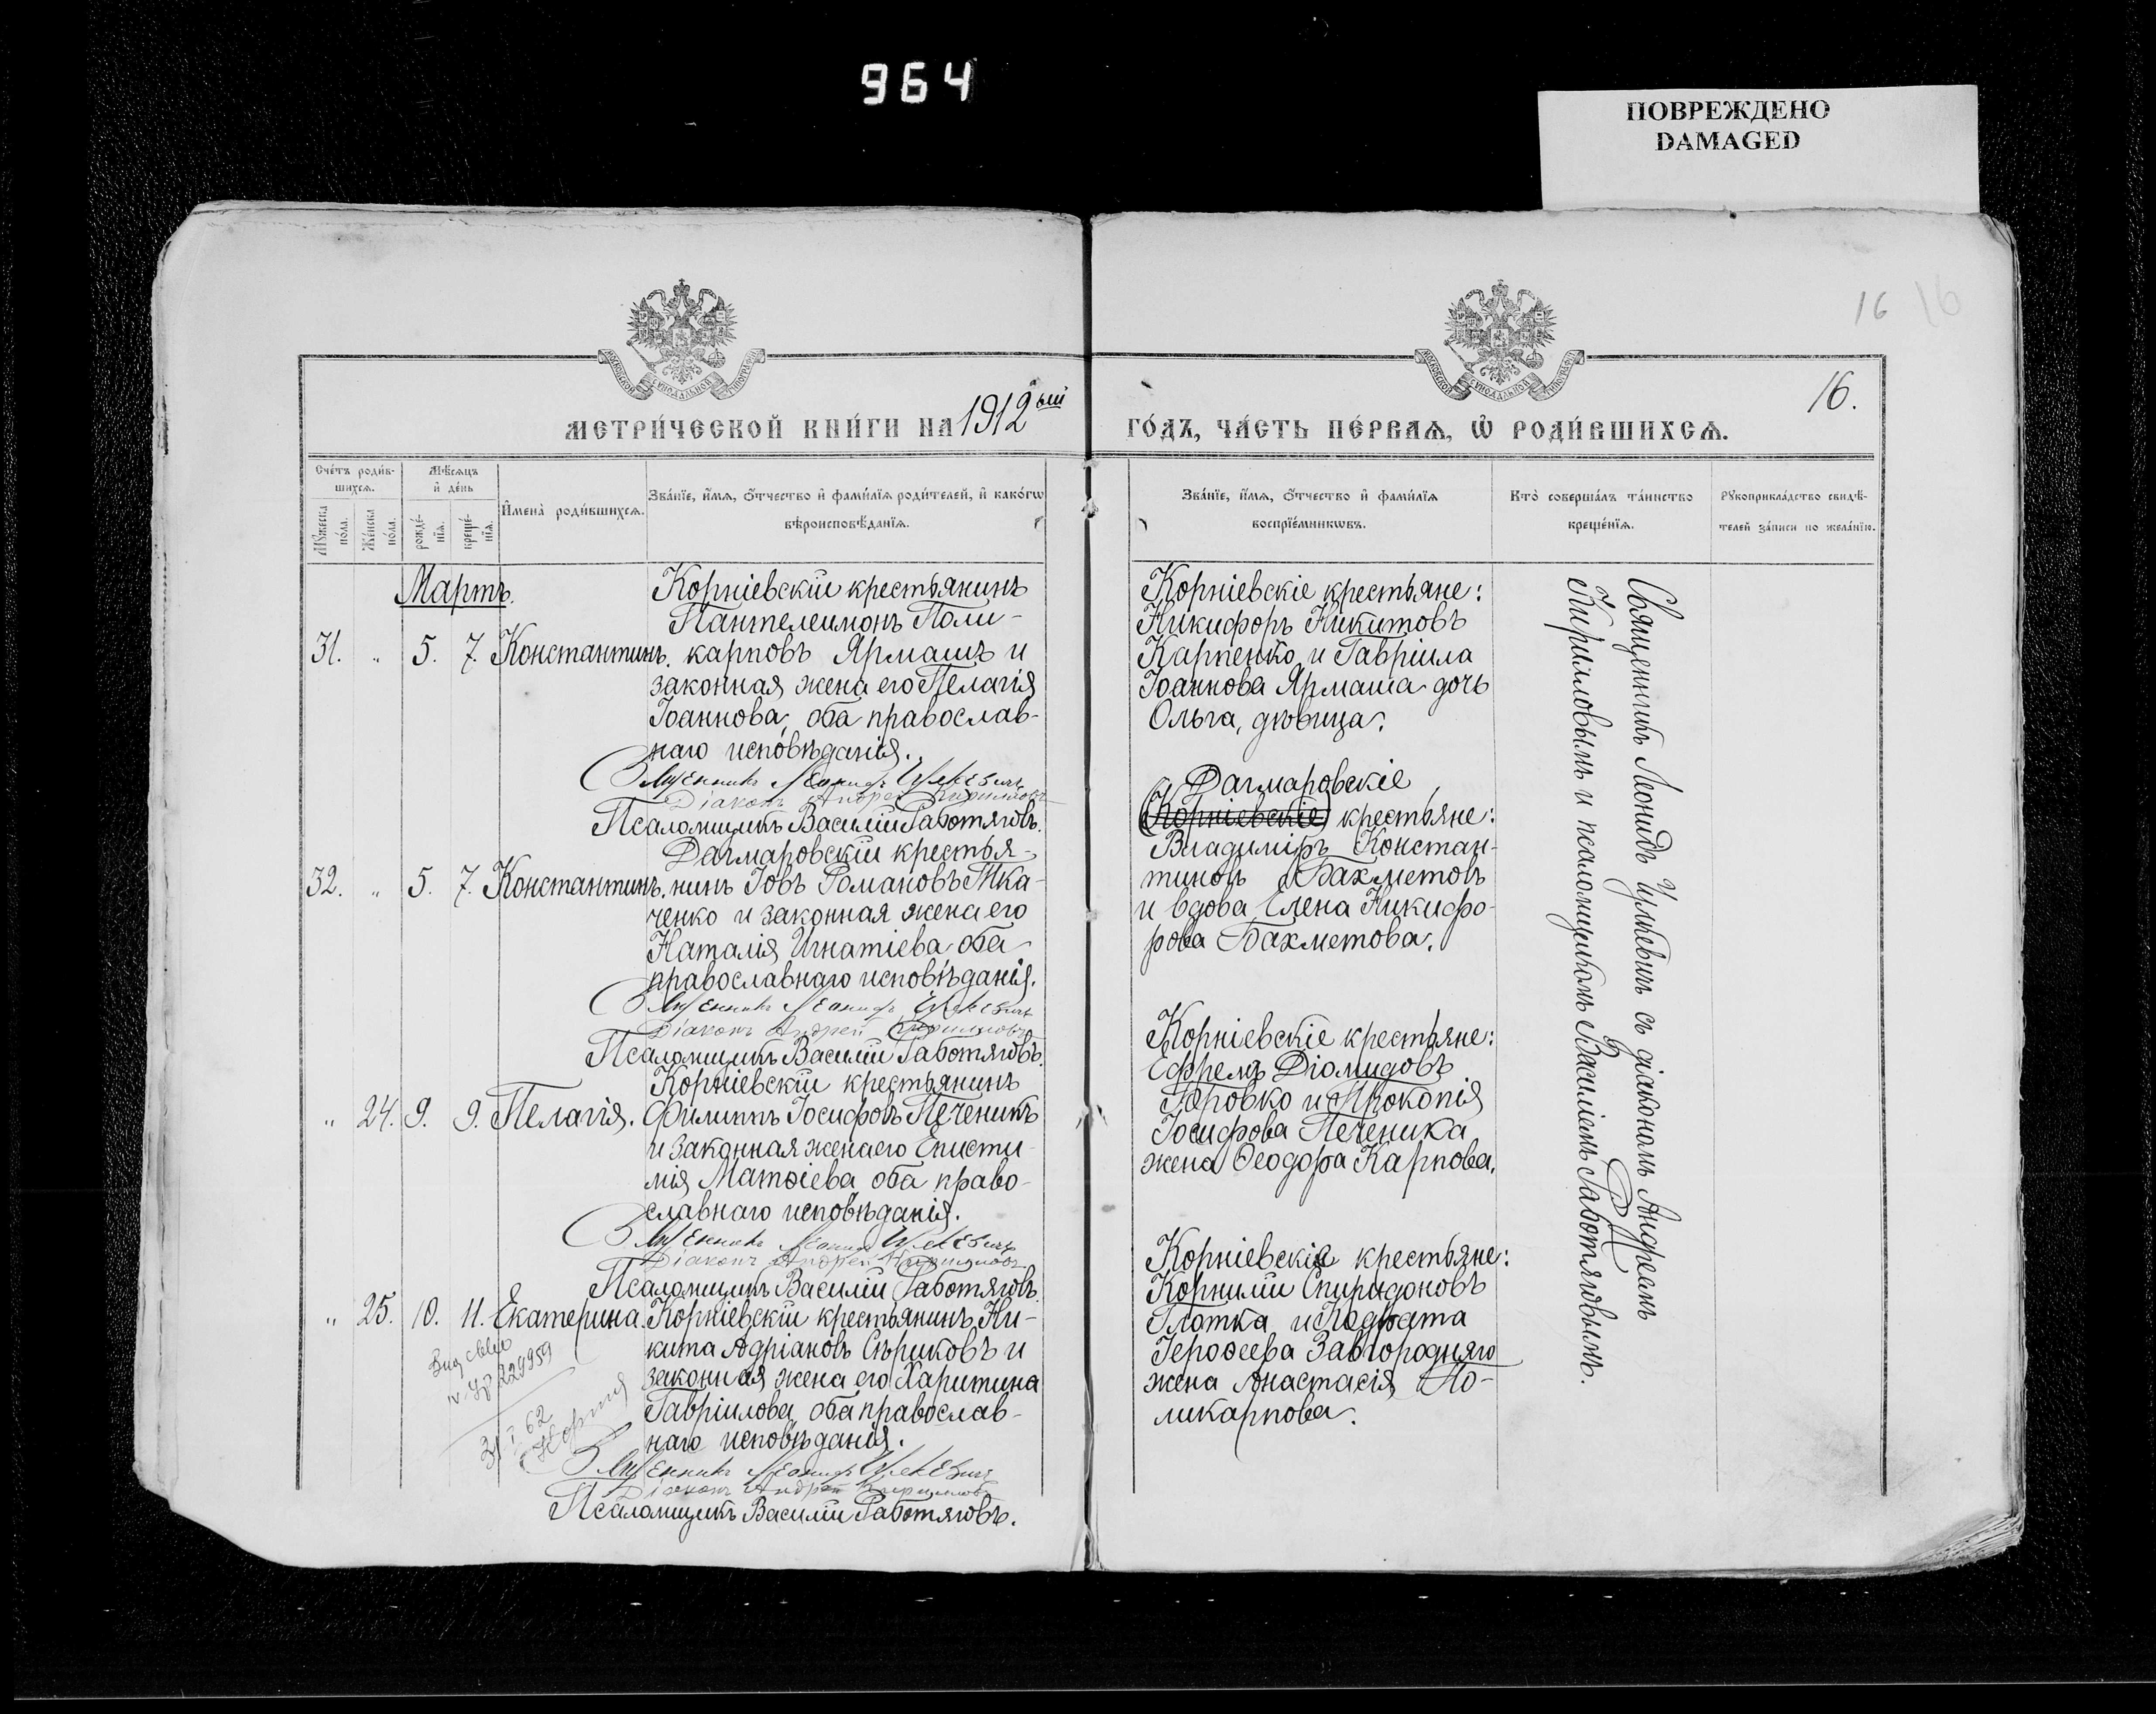 964
ПОВРЕЖДЕНО
DAMAGED
16 16
16.
МЕТРИ́ЧЕСКОЙ КНИ́ГИ НА 1912ый
ГО́ДЪ, ЧА́СТЬ ПЕ́РВАѦ, Ѡ҆ РОДИ́ВШИХСѦ.
Сче́тъ роди́в-
шихсѧ.
Мꙋ́жеска
по́ла.
Же́нска
по́ла.
Мѣ́сѧцъ
и҆ де́нь
рожде́-
нїѧ.
креще́-
нїѧ.
И҆мена̀ роди́вшихсѧ.
Зва́нїе, и҆́мѧ, ѻ҆́тчество и҆ фами́лїѧ роди́телей, и҆ како́гѡ
вѣроисповѣ́данїѧ.
Зва́нїе, и҆́мѧ, ѻ҆́тчество и҆ фами́лїѧ
воспрїе́мникѡвъ.
Кто̀ соверша́лъ та́инство
креще́нїѧ.
Рꙋкоприкла́дство свидѣ́-
телей за́писи по жела́нїю.
Мартъ.
31. " 5. 7. Константинъ.
Корніевскій крестьянинъ
Пантелеимонъ Поли-
карповъ Ярмашъ и
законная жена его Пелагія
Іоаннова, оба православ-
наго исповѣданія.
Священникъ Леонидъ
Діаконъ Андрей Кирилловъ
Псаломщикъ Василій Работяговъ.
Корніевскіе крестьяне:
Никифоръ Никитовъ
Карпенко и Гавріила
Іоаннова Ярмаша дочь
Ольга, дѣвица.
32. " 5. 7. Константинъ.
Дагмаровскій крестья-
нинъ Іовъ Романовъ Тка-
ченко и законная жена его
Наталія Игнатіева оба
православнаго исповѣданія.
Священникъ Леонидъ
Діаконъ Андрей Кирилловъ
Псаломщикъ Василій Работяговъ.
Дагмаровскіе
(Корніевскіе) крестьяне:
Владиміръ Констан-
тиновъ Бахметовъ
и вдова Елена Никифо-
рова Бахметова.
" 24. 9. 9. Пелагія.
Корніевскій крестьянинъ
Филиппъ Іосифовъ Печеникъ
и законная жена его Еписти-
мія Матѳіева оба право-
славнаго исповѣданія.
Священникъ Леонидъ
Діаконъ Андрей Кирилловъ
Псаломщикъ Василій Работяговъ.
Корніевскіе крестьяне:
Ефремъ Діомидовъ
и Прокопія
Іосифова Печеника
жена Ѳеодора Карпова.
" 25. 10. 11. Екатерина.
Корніевскій крестьянинъ Ни-
кита Адріановъ Сѣриковъ и
законная жена его Харитина
Гавріилова, оба православ-
наго исповѣданія.
Священникъ Леонидъ
Діаконъ Андрей Кирилловъ
Псаломщикъ Василій Работяговъ.
Корніевскіе крестьяне:
Корнилій Спиридоновъ
Глотка и Кодрата
Іероѳеева Завгородняго
жена Анастасія По-
ликарпова.
229959
62
Священникъ Леонидъ съ діакономъ Андреемъ
Кирилловымъ и псаломщикомъ Василіемъ Работяговымъ.